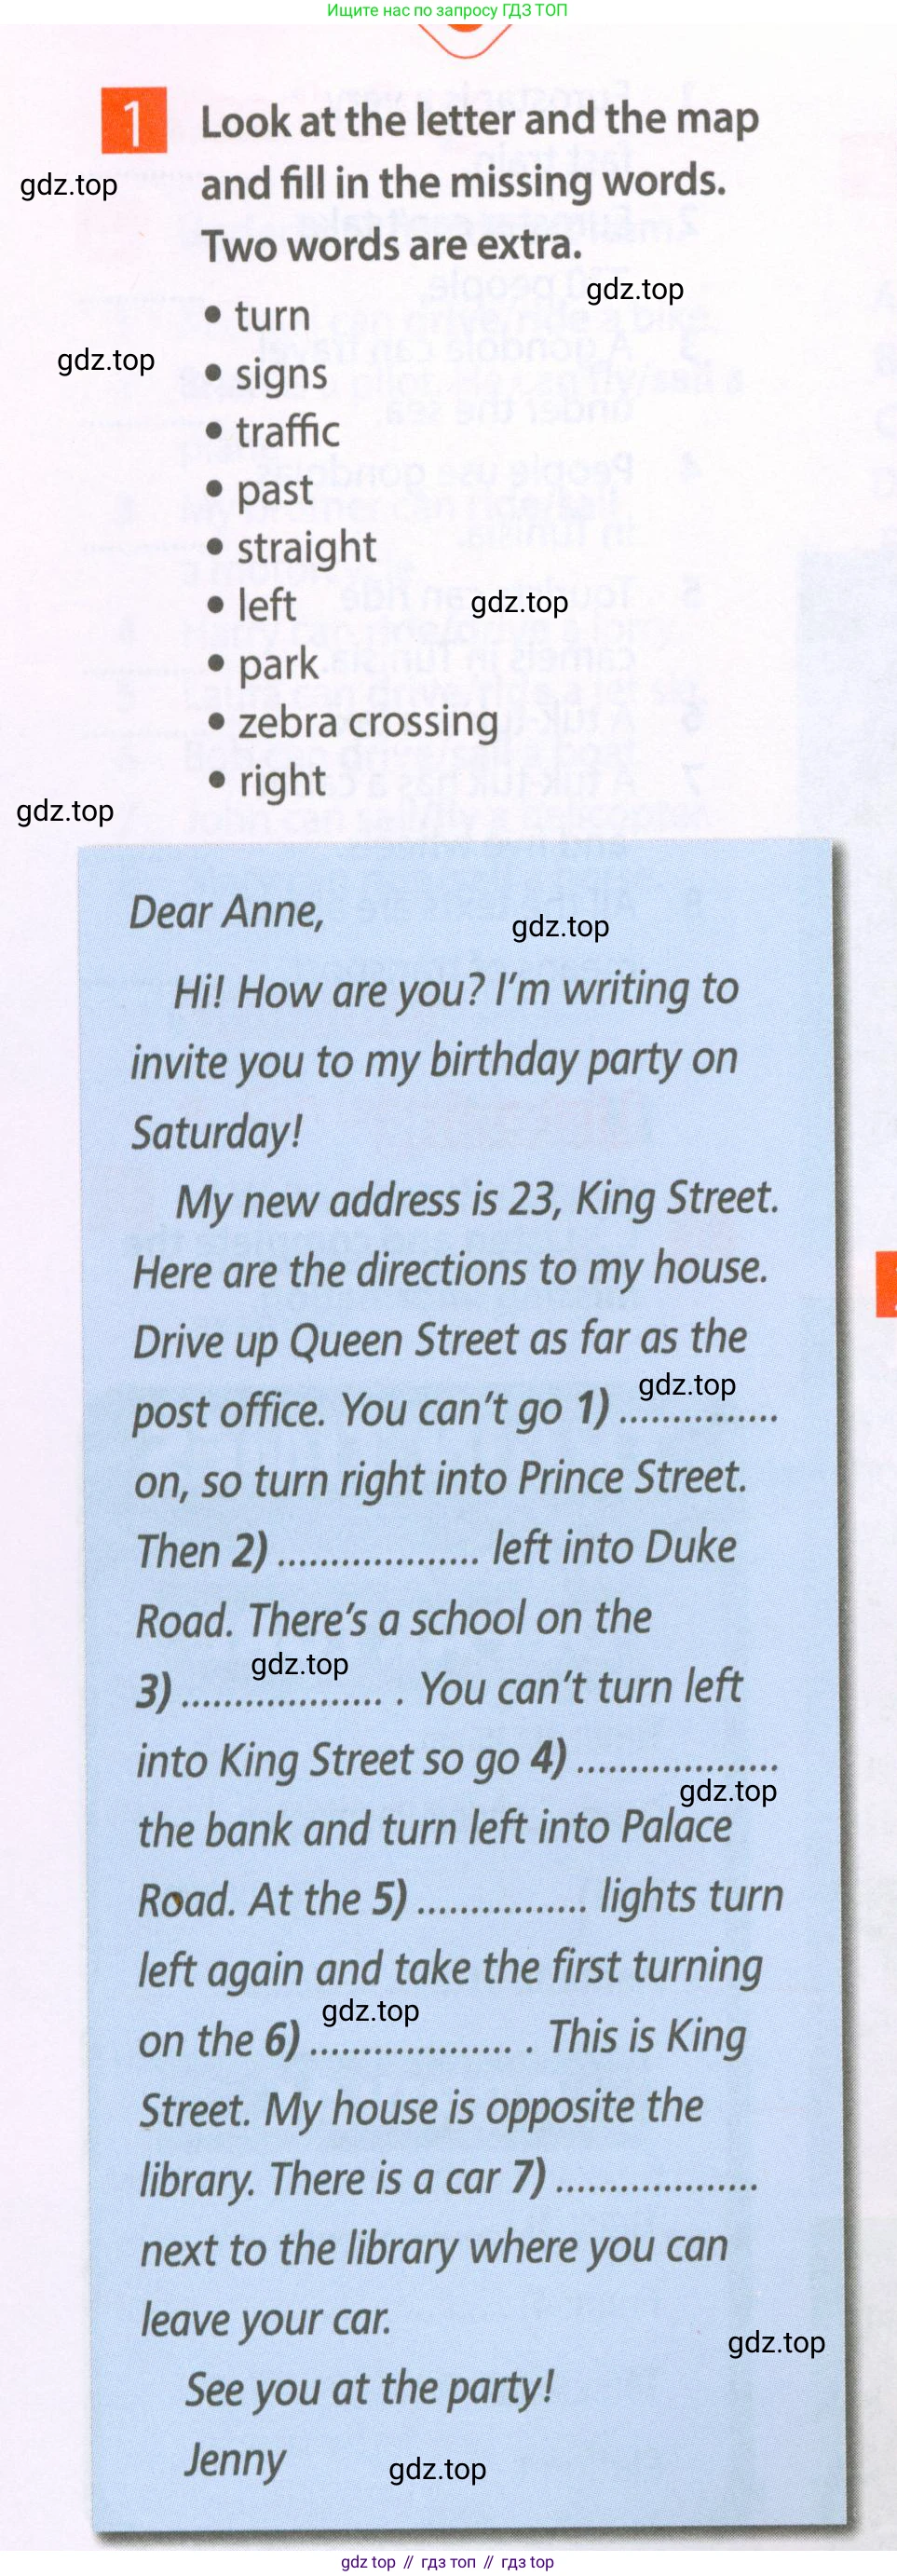 Ищите нас по запросу ГДЗ ТОП
1 Look at the letter and the map
gdz.top
and fill in the missing words.
Two words are extra.
gdz.top
• turn
gdz.top
• signs
• traffic
• past
• straight
• left
gdz.top
• park
• zebra crossing
• right
gdz.top
Dear Anne,
gdz.top
Hi! How are you? I'm writing to
invite you to my birthday party on
Saturday!
My new address is 23, King Street.
Here are the directions to my house.
Drive up Queen Street as far as the
gdz.top
post office. You can't go 1) ...............
on, so turn right into Prince Street.
Then 2) ................... left into Duke
Road. There's a school on the
gdz.top
3) ................... . You can't turn left
into King Street so go 4) ...................
gdz.top
the bank and turn left into Palace
Road. At the 5) ................ lights turn
left again and take the first turning
gdz.top
on the 6) ................... . This is King
Street. My house is opposite the
library. There is a car 7) ...................
next to the library where you can
leave your car.
gdz.top
See you at the party!
Jenny
gdz.top
gdz top // гдз топ // гдз top